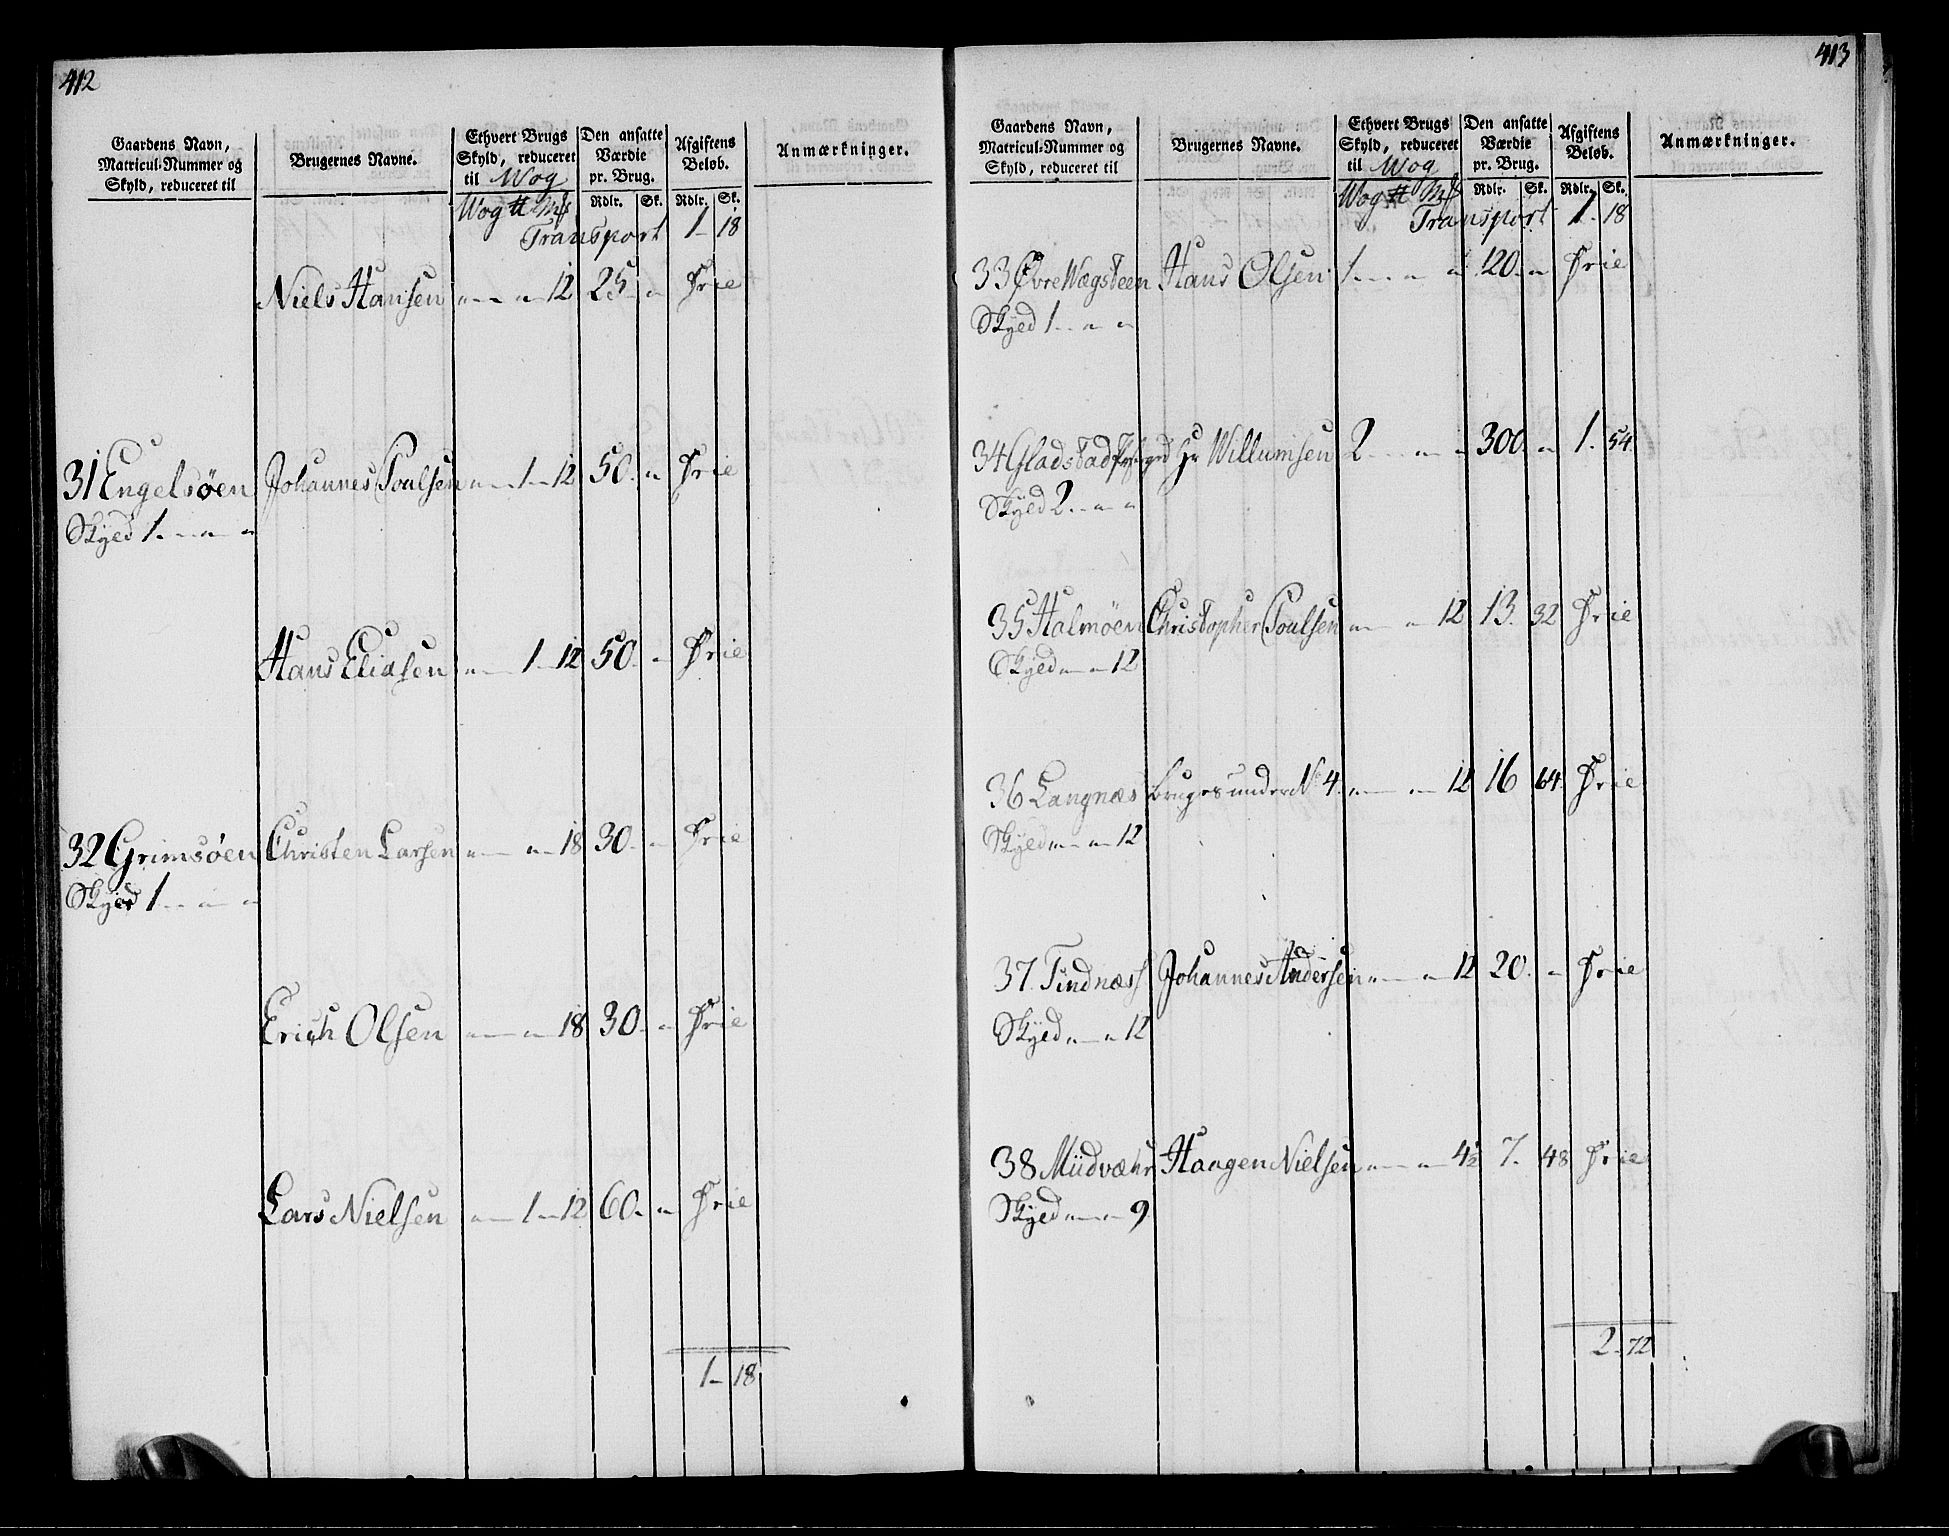 412
Gaardens Navn, Matricul-Nummer og Skyld, reduceret til
Brugernes Navne.
Ethvert Brugs Skyld, reduceret til Wog
Den ansatte Værdie pr. Brug.
Afgiftens Beløb.
Anmærkninger.
Wog ℔ Mk Rdlr. Sk. Rdlr. Sk.
Transport 1 - 18
Niels Hansen " — " - 12 25 - " Frie
31 Engelsøen Johannes Poulsen " — 1 - 12 50. " Frie
Skyld 1. - " - "
Hans Eliasen " — 1 - 12 50. - " Frie
32 Grimsøen Christen Larsen " — " - 18 30. - " Frie
Skyld 1. - " - "
Erich Olsen " — " - 18 30. - " Frie
Lars Nielsen " — 1 - 12 60. - " Frie
1 - 18
413
Gaardens Navn, Matricul-Nummer og Skyld, reduceret til
Brugernes Navne.
Ethvert Brugs Skyld, reduceret til Wog
Den ansatte Værdie pr. Brug.
Afgiftens Beløb.
Anmærkninger.
Wog ℔ Mk Rdlr. Sk. Rdlr. Sk.
Transport 1 - 18
33 Øvre Wægsteen Hans Olsen 1 - " - " 120 - " Frie
Skyld 1 - " - "
34 Gladstad Hr Willumsen 2 - " - " 300. - " 1. 54.
Skyld 2. - " - "
35 Halmøen Christopher Poulsen " — " 12 13. 32 Frie
Skyld " — " 12
36 Langnæs bruges under No 4. " — " - 12 16 64. Frie
Skyld " — " - 12
37. Tindnæs Johannes Andersen " — " 12 20. - " Frie
Skyld " — " 12
38 Miidvæhr Haagen Nielsen " — " 4½ 7. 48 Frie
Skyld " — " 9
2 - 72